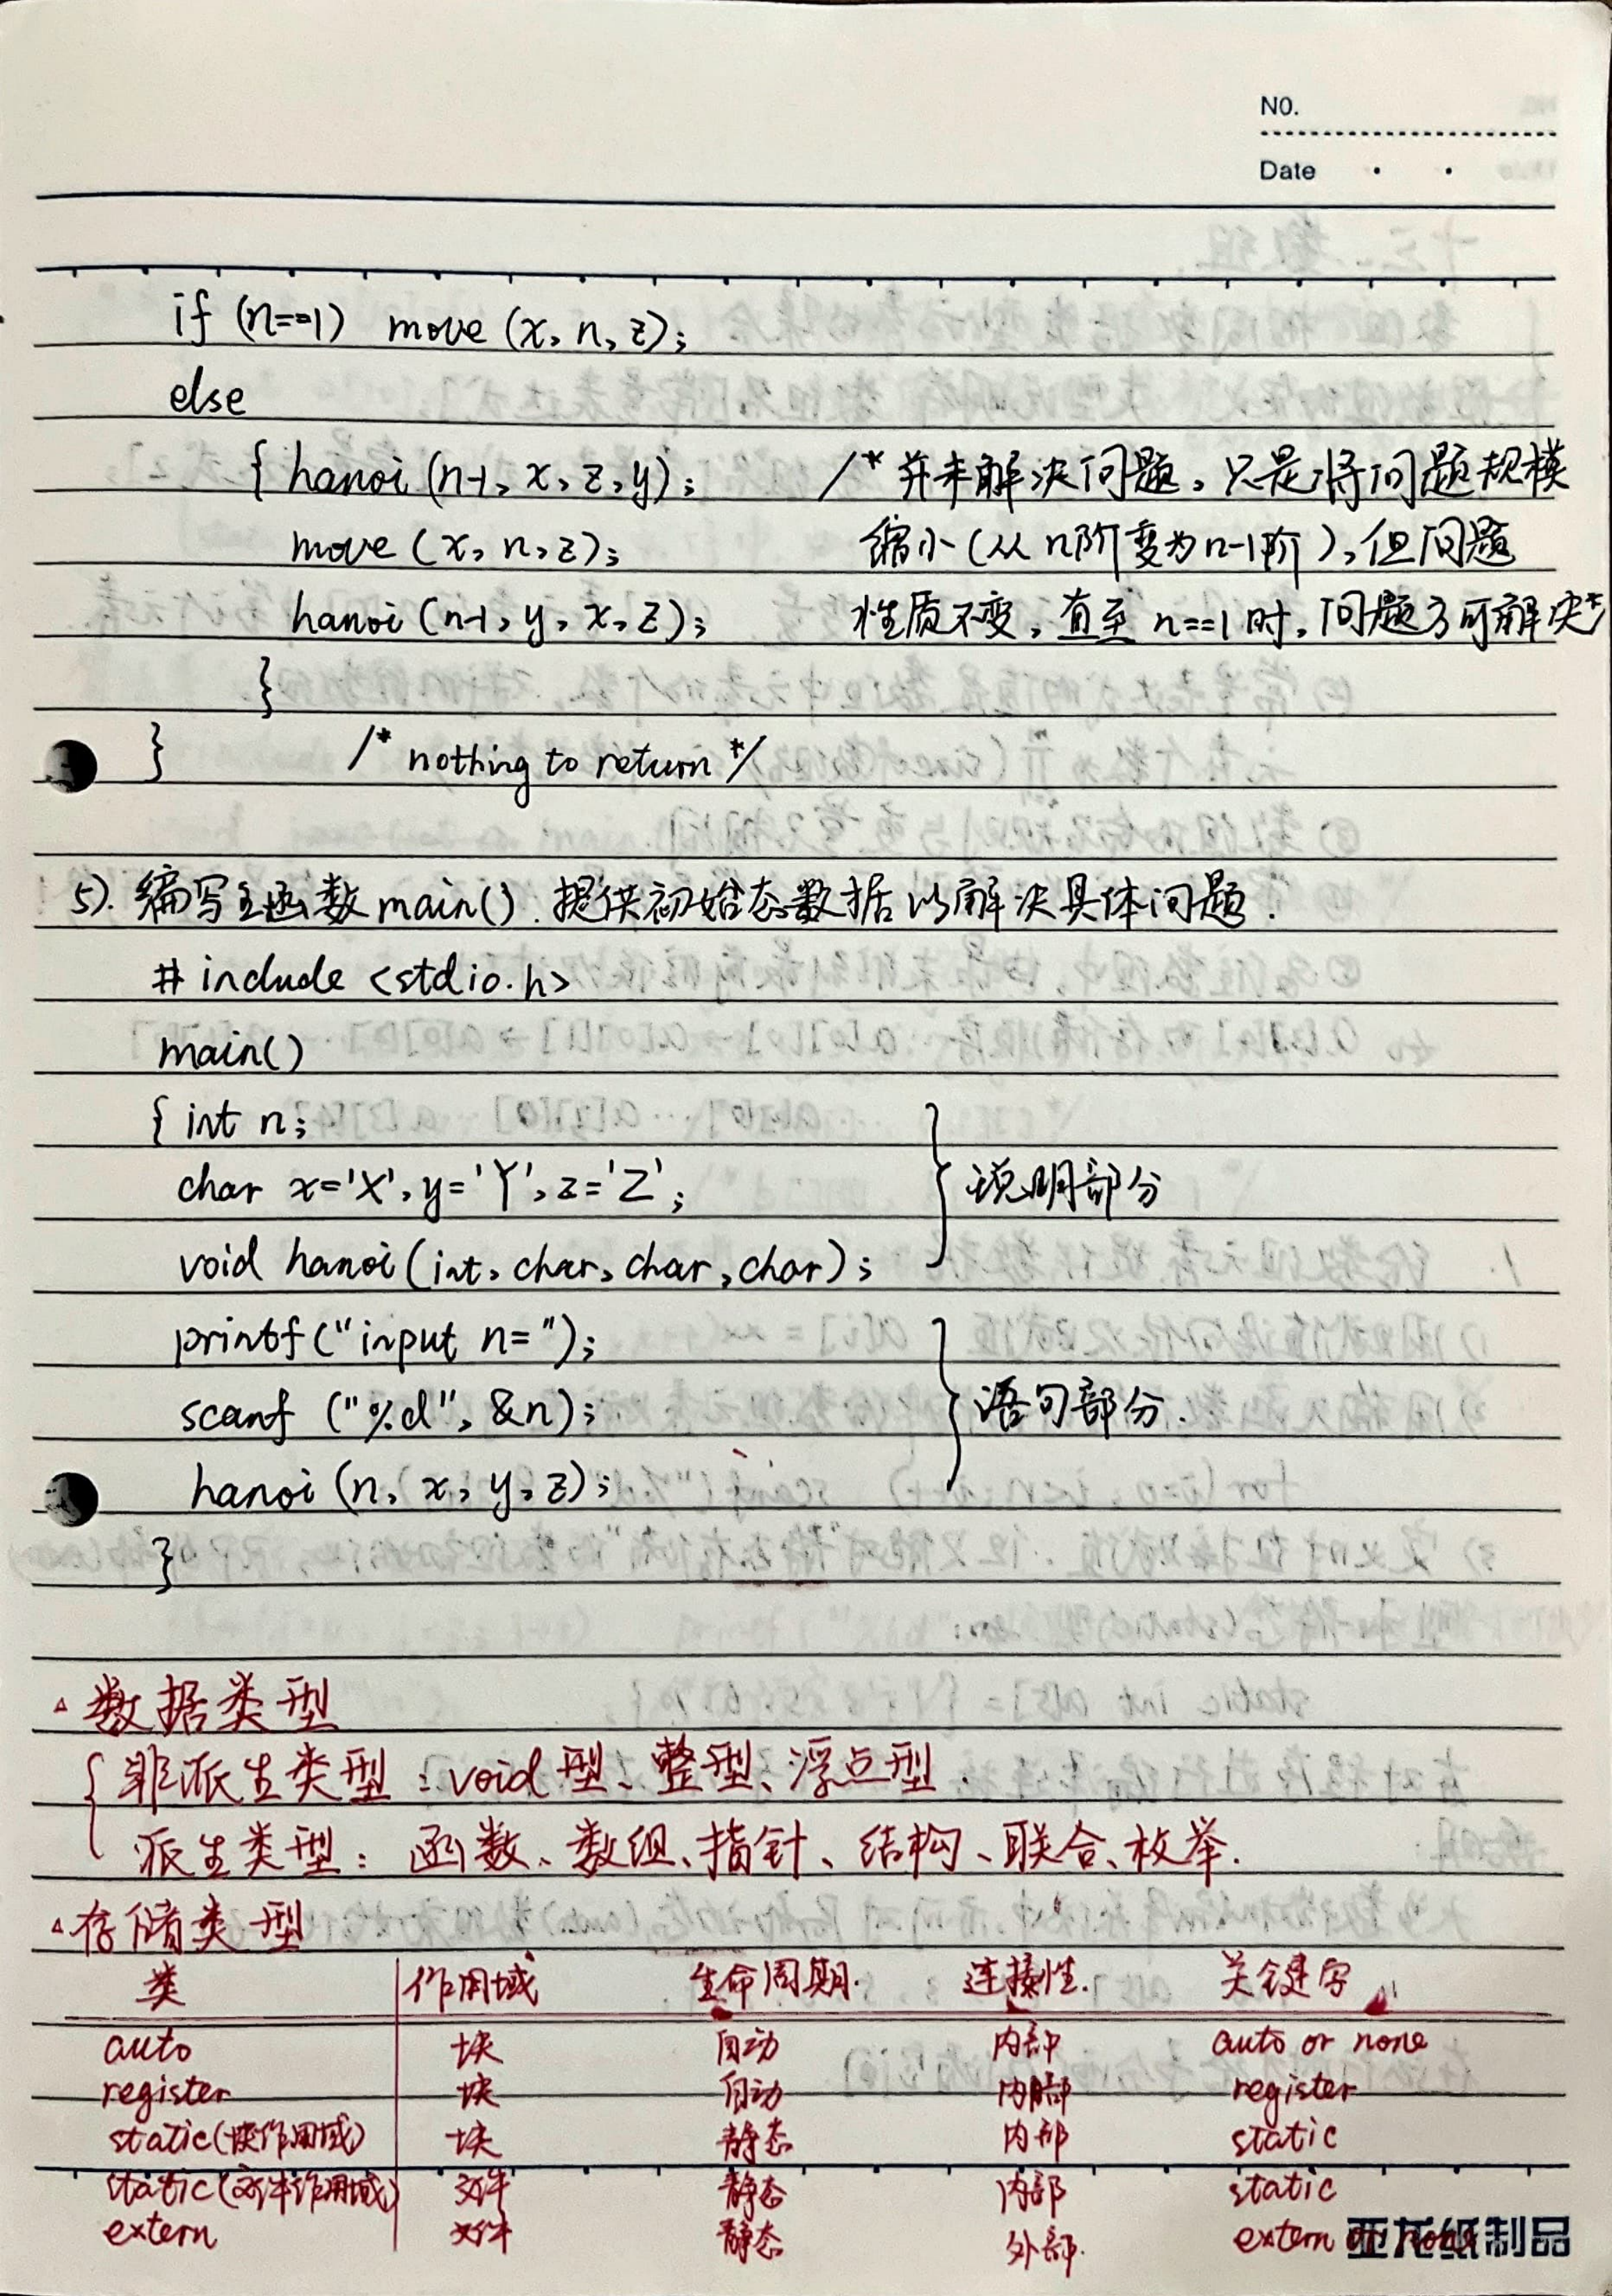 NO.
Date
if (n==1) move (x, n, z);
else
{ hanoi (n-1, x, z, y); /* 并未解决问题，只是将问题规模
move (x, n, z); 缩小(从n阶变为n-1阶),但问题
hanoi (n-1, y, x, z); 性质不变，直至 n==1 时，问题方可解决*/
}
} /* nothing to return */
5). 编写主函数 main() . 提供初始态数据以解决具体问题.
# include <stdio.h>
main()
{ int n;
char x='X', y='Y', z='Z';
说明部分
void hanoi (int, char, char, char);
printf ("input n=");
scanf ("%d", &n);
语句部分.
hanoi (n, x, y, z);
}
△ 数据类型
{ 非派生类型：void型、整型、浮点型.
派生类型：函数、数组、指针、结构、联合、枚举.
△ 存储类型
类 作用域 生命周期. 连接性. 关键字
auto 块 自动 内部 auto or none
register 块 自动 内部 register
static(块作用域) 块 静态 内部 static
static(文件作用域) 文件 静态 内部 static
extern 文件 静态 外部. extern or none
亚龙纸制品